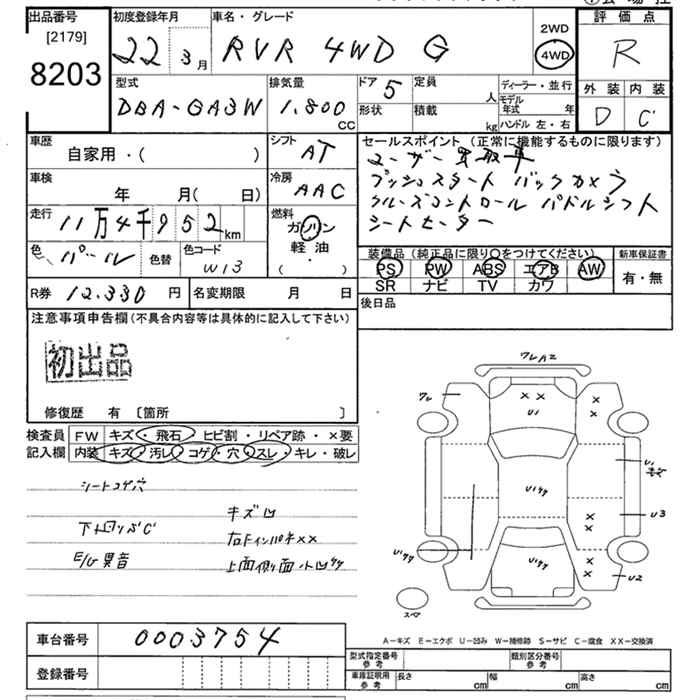 出品番号 初度登録年月 車名・グレード 評価点
[2179] 22年 3月 RVR 4WD G 2WD 4WD R
8203 型式 排気量 ドア 5 定員 人 ディーラー・並行 外装 内装
DBA-GA3W 1,800 CC 形状 積載 kg モデル年式 年 ハンドル 左・右 D C
車歴 シフト AT セールスポイント (正常に機能するものに限ります)
自家用・( ) ユーザー買取車
車検 冷房 AAC プッシュスタート バックカメラ
年 月(日) クルーズコントロール パドルシフト
走行 11万4千952km 燃料 ガソリン シートヒーター
色 パール 色替 色コード W13 軽油 ( ) 装備品 (純正品に限り○をつけてください) 新車保証書
PS PW ABS エアB AW 有・無
SR ナビ TV カワ
R券 12,330 円 名変期限 月 日 後日品
注意事項申告欄(不具合内容等は具体的に記入して下さい)
初出品
修復歴 有 〔箇所 〕
検査員 FW キズ・飛石・ヒビ割・リペア跡・×要
記入欄 内装 キズ・汚レ・コゲ・穴・スレ・キレ・破レ
シートコゲ穴
キズ凹
下回りサビC
E/G異音
上面側面小凹
XX U1 U3 U2
スペア
車台番号 0003754
A-キズ E-エクボ U-凹み W-補修跡 S-サビ C-腐食 XX-交換済
登録番号 型式指定番号 参考 類別区分番号 参考
車庫証明用 参考 長さ cm 幅 cm 高さ cm